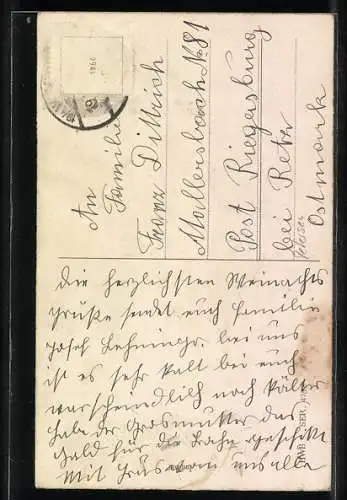 An
Familie
Franz Dittrich
Mallersbach No 81
Post Riegersburg
bei Retz
Ostmark
Die herzlichsten Weinachts
grüße sendet euch Familie
Josef bei uns
ist es sehr kalt bei euch
warscheindlich noch kälter
habe der Grosmutter das
Geld für die Bahn geschikt
Mit Grüse von uns alle